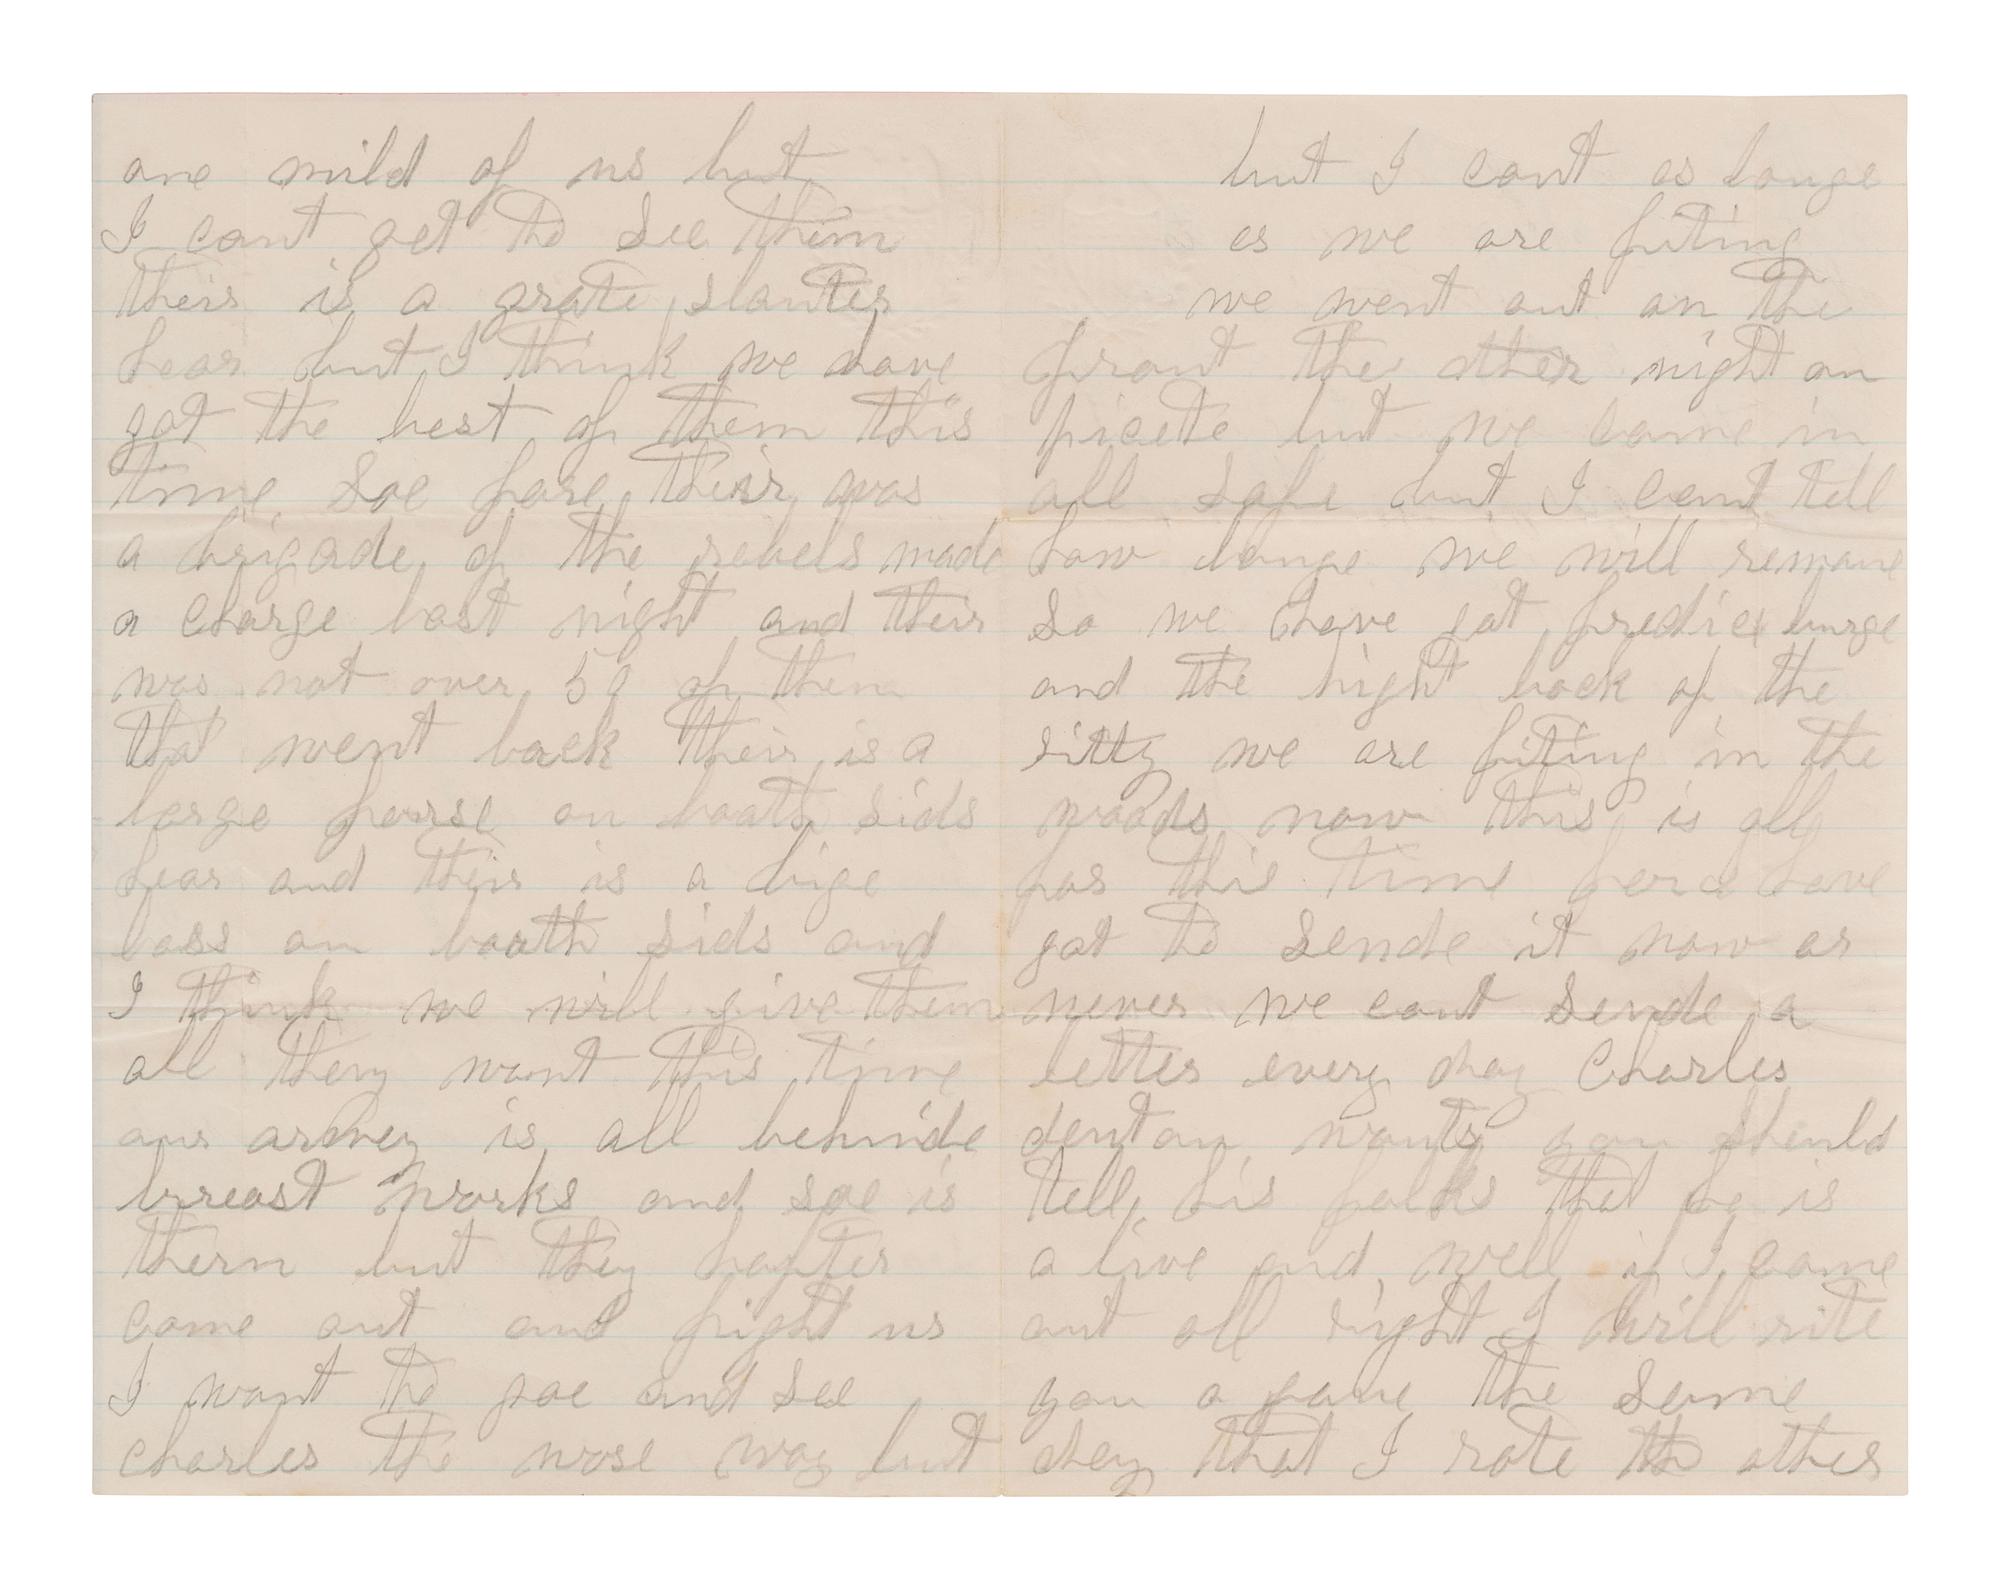 one mild of us but
I cant get to see them
their is a grate slauter
hear but I think we have
got the best of them this
time soe fare their was
a brigade of the rebels made
a charge last night and their
was not over 50 of them
that went back their is a
large forrse on booth sids
hear and their is a hige
loss on booth sids and
I think we will give them
all they want this time
our armey is all behinde
brreast works and soe is
them but they hafter
come out and fight us
I want to goe and see
charles the worse way but
but I cant as longe
es we are fiting
we went out on the
front the other night on
picete but we came in
all safe but I cant tell
how longe we will remane
so we have got fredricx burge
and the hight back of the
sitty we are fiting in the
woods now this is all
for this time for a have
got to sende it now or
never we cant sende a
letter every day Charles
denton wants you should
tell his folks that he is
a live and well if I came
out all right I will rite
you a gane the same
day that I rote the other